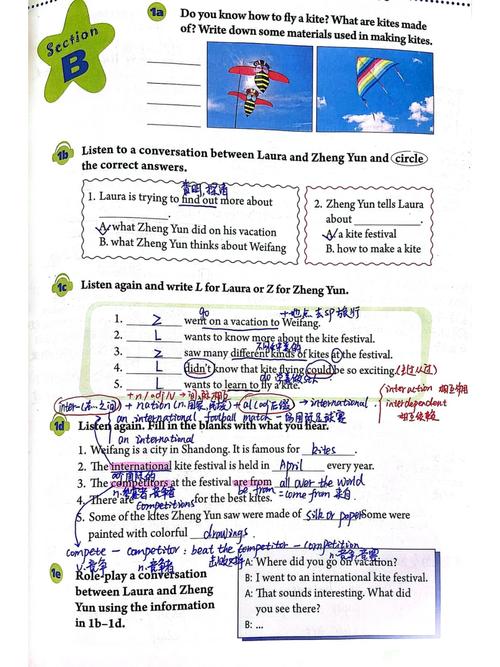 Section
B
1a Do you know how to fly a kite? What are kites made
of? Write down some materials used in making kites.
1b Listen to a conversation between Laura and Zheng Yun and circle
the correct answers.
1. Laura is trying to find out more about
A. what Zheng Yun did on his vacation
B. what Zheng Yun thinks about Weifang
2. Zheng Yun tells Laura
about
A. a kite festival
B. how to make a kite
1c Listen again and write L for Laura or Z for Zheng Yun.
go
1. Z went on a vacation to Weifang.
2. L wants to know more about the kite festival.
3. Z saw many different kinds of kites at the festival.
4. L didn't know that kite flying could be so exciting.
5. L wants to learn to fly a kite.
inter- + nation + al → international
interaction
interdependent
an international football match
1d Listen again. Fill in the blanks with what you hear.
an international
1. Weifang is a city in Shandong. It is famous for kites.
2. The international kite festival is held in April every year.
3. The competitors at the festival are from all over the world
be from = come from 来自
4. There are competitions for the best kites.
5. Some of the kites Zheng Yun saw were made of silk or paper Some were
painted with colorful drawings.
compete - competitor: beat the competitor - competition
1e Role-play a conversation
between Laura and Zheng
Yun using the information
in 1b–1d.
A: Where did you go on vacation?
B: I went to an international kite festival.
A: That sounds interesting. What did
you see there?
B: ...